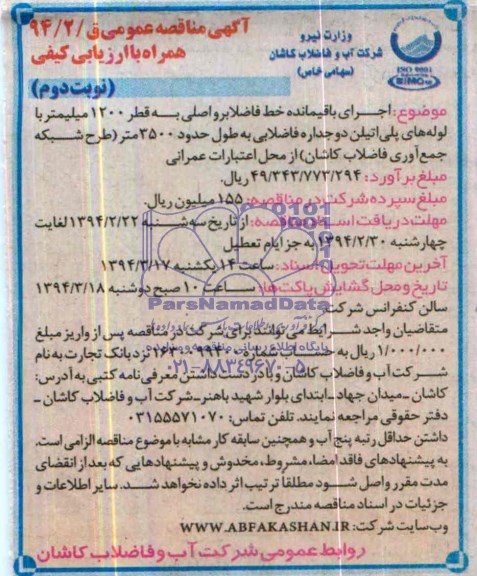 آگهی مناقصه عمومی ق/۹۴/۲
همراه با ارزیابی کیفی
وزارت نیرو
شرکت آب و فاضلاب کاشان
(سهامی خاص)
ISO 9001
(نوبت دوم)
موضوع: اجرای باقیمانده خط فاضلابرو اصلی به قطر ۱۲۰۰ میلیمتر با
لوله‌های پلی‌اتیلن دوجداره فاضلابی به طول حدود ۳۵۰۰ متر (طرح شبکه
جمع‌آوری فاضلاب کاشان) از محل اعتبارات عمرانی
مبلغ برآورد: ۴۹/۳۴۳/۷۷۳/۲۹۴ ریال.
مبلغ سپرده شرکت در مناقصه: ۱۵۵ میلیون ریال.
مهلت دریافت اسناد مناقصه: از تاریخ سه‌شنبه ۱۳۹۴/۲/۲۲ لغایت
چهارشنبه ۱۳۹۴/۲/۳۰ به جز ایام تعطیل
آخرین مهلت تحویل اسناد: ساعت ۱۴ یکشنبه ۱۳۹۴/۳/۱۷
تاریخ و محل گشایش پاکت‌ها: ساعت ۱۰ صبح دوشنبه ۱۳۹۴/۳/۱۸
سالن کنفرانس شرکت
متقاضیان واجد شرایط می توانند برای شرکت در مناقصه پس از واریز مبلغ
۱/۰۰۰/۰۰۰ ریال به حساب شماره نزد بانک تجارت به نام
شرکت آب و فاضلاب کاشان و با در دست داشتن معرفی نامه کتبی به آدرس:
کاشان - میدان جهاد - ابتدای بلوار شهید باهنر - شرکت آب و فاضلاب کاشان -
دفتر حقوقی مراجعه نمایند. تلفن تماس: ۰۳۱۵۵۵۷۱۰۷۰
داشتن حداقل رتبه پنج آب و همچنین سابقه کار مشابه با موضوع مناقصه الزامی است.
به پیشنهادهای فاقد امضا، مشروط، مخدوش و پیشنهادهایی که بعد از انقضای
مدت مقرر واصل شود مطلقا ترتیب اثر داده نخواهد شد. سایر اطلاعات و
جزئیات در اسناد مناقصه مندرج است.
وب سایت شرکت: WWW.ABFAKASHAN.IR
روابط عمومی شرکت آب و فاضلاب کاشان
ParsNamadData
پایگاه اطلاع رسانی مناقصه و مزایده
۰۲۱-۸۸۳۴۹۶۷۰-۵